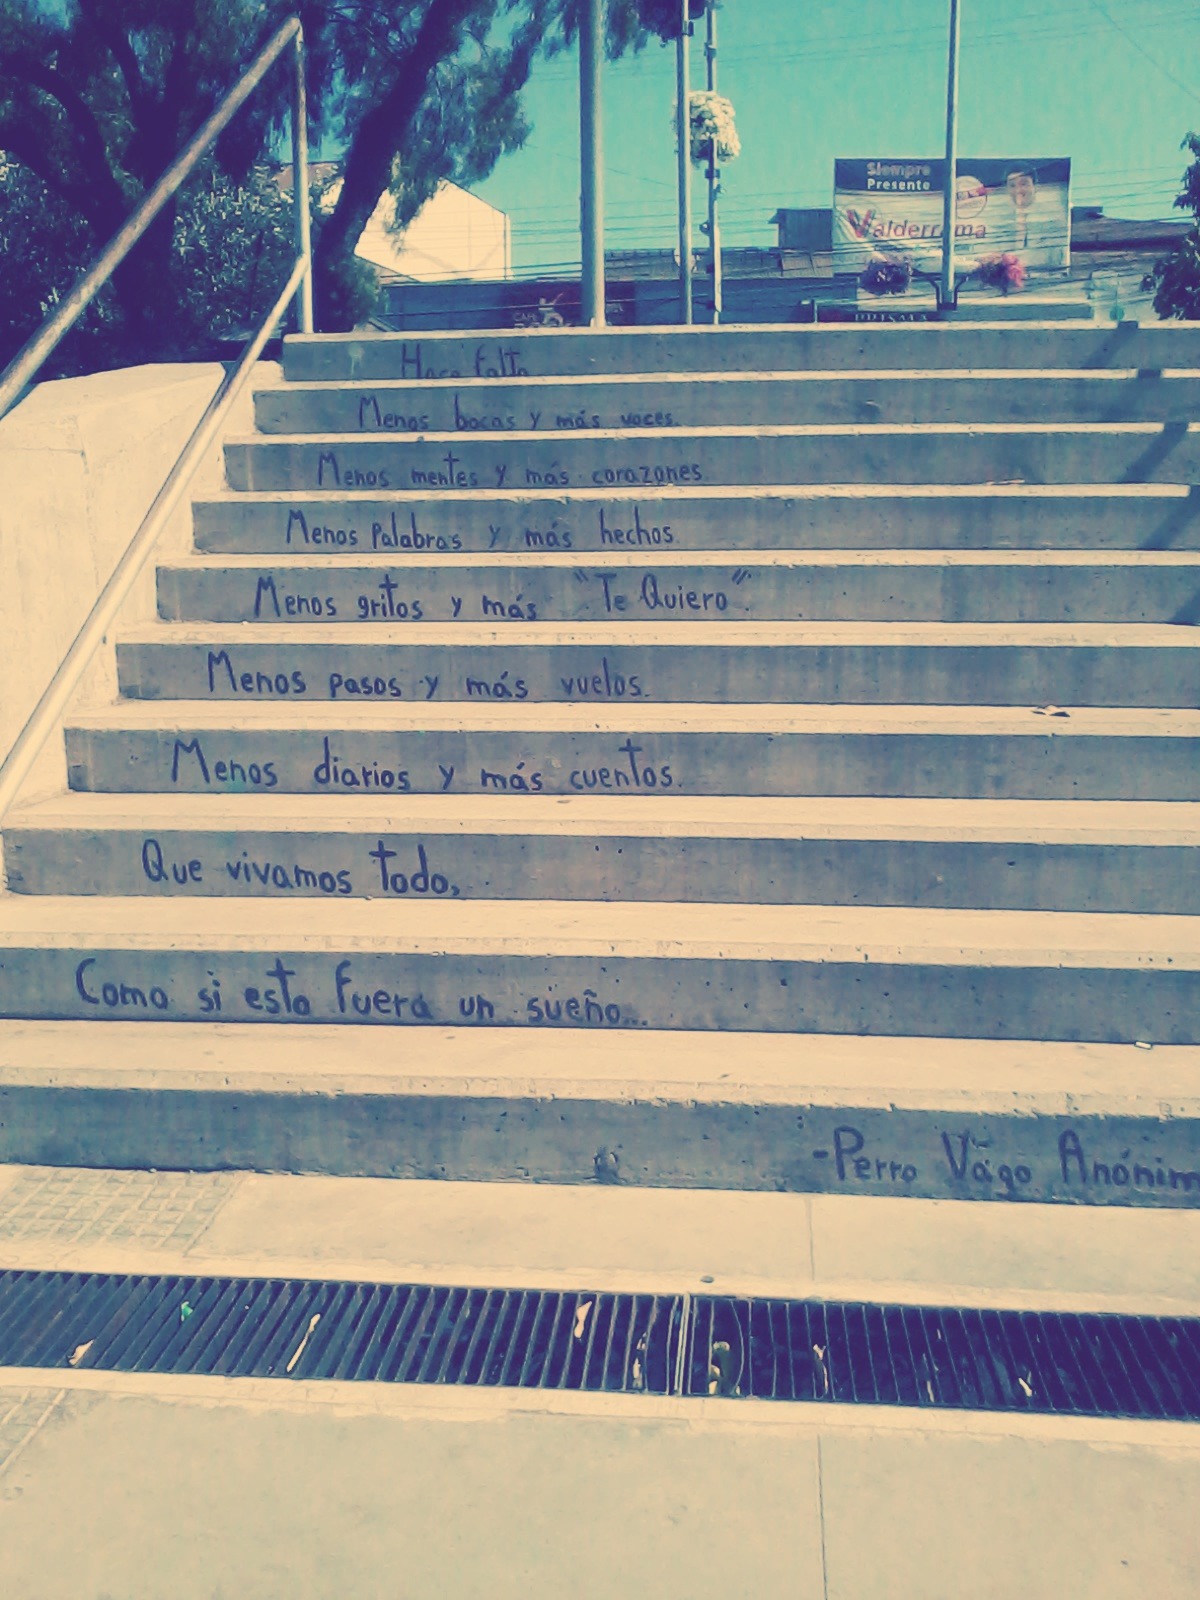 Siempre
Presente
Valderrama
Hace falta
Menos bocas y más voces.
Menos mentes y más corazones.
Menos palabras y más hechos.
Menos gritos y más "Te Quiero".
Menos pasos y más vuelos.
Menos diarios y más cuentos.
Que vivamos todo,
Como si esto fuera un sueño...
-Perro Vago Anónim